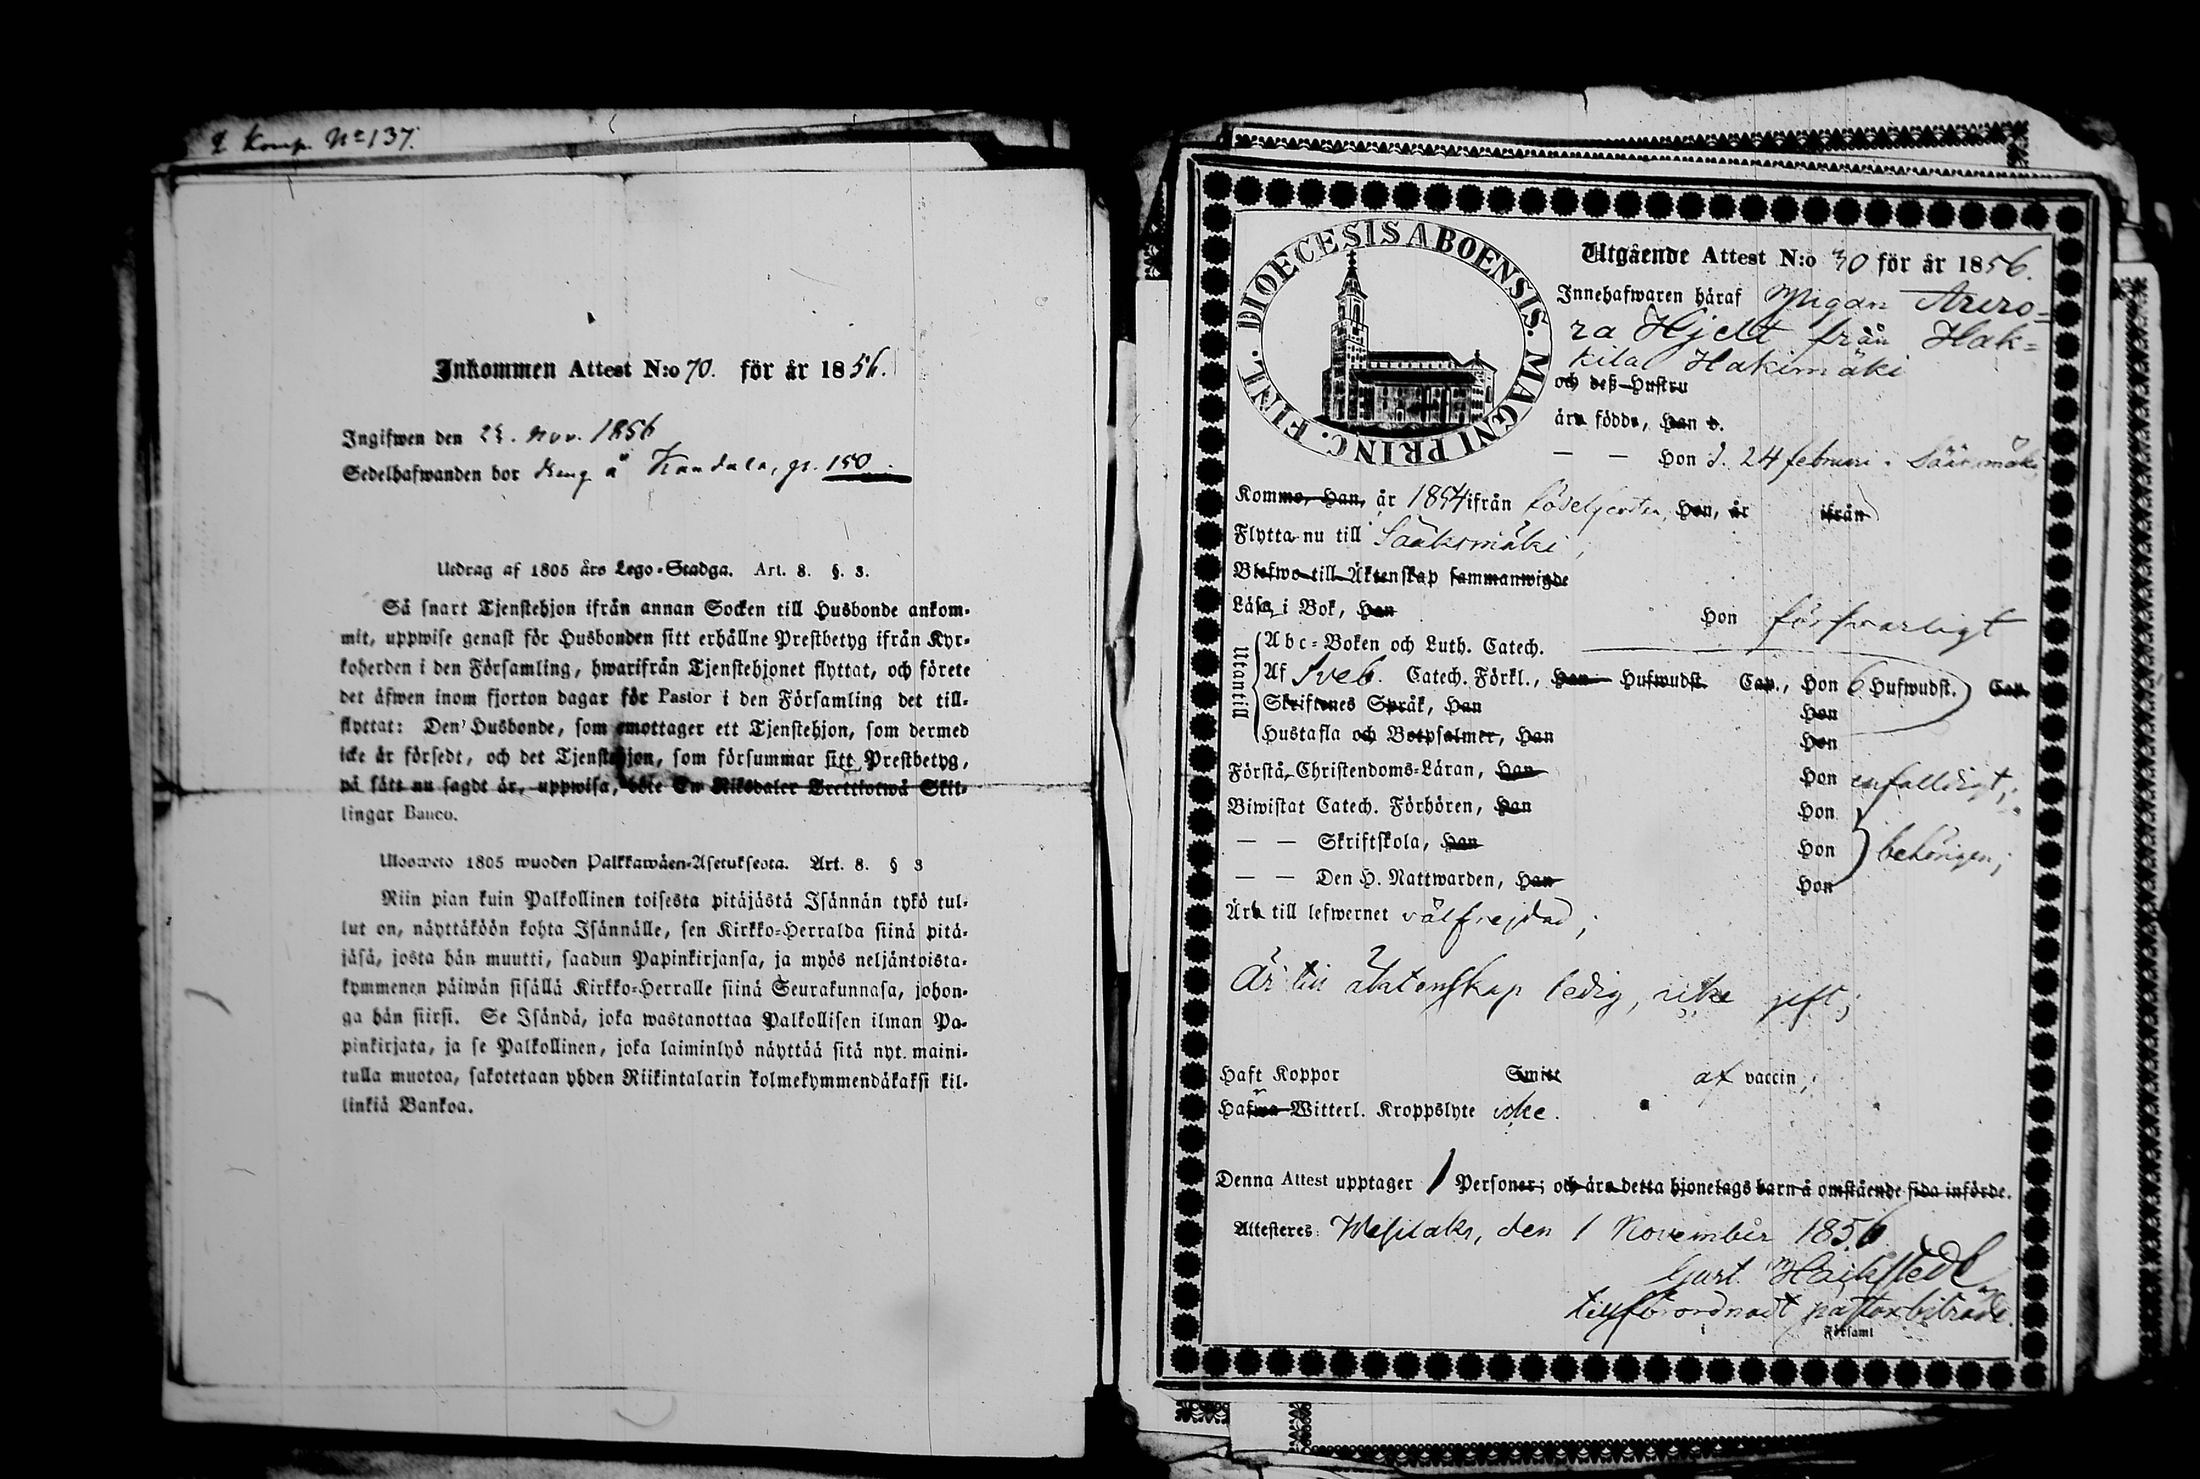 Komp. No 137.
Inkommen Attest N:o 70. för år 1856.
Ingifwen den 23. Nov. 1856
Sedelhafwanden bor 150
Utdrag af 1805 års Lego-Stadga. Art. 8. §. 3.
Så snart Tjenstehjon ifrån annan Socken till Husbonde ankom-
mit, uppwise genast för Husbonden sitt erhållne Prestbetyg ifrån Kyr-
koherden i den Församling, hwarifrån Tjenstehjonet flyttat, och förete
det äfwen inom fjorton dagar för Pastor i den Församling det till-
flyttat: Den Husbonde, som emottager ett Tjenstehjon, som dermed
icke är försedt, och det Tjenstehjon, som försummar sitt Prestbetyg,
på sätt nu sagdt är, uppwisa, böte En Riksdaler Trettiotwå Skil-
lingar Banco.
Ulosweto 1805 wuoden Palkkawäen-Asetuksesta. Art. 8. § 3
Niin pian kuin Palkollinen toisesta pitäjästä Isännän tykö tul-
lut on, näyttäköön kohta Isännälle, sen Kirkko-Herralda siinä pitä-
jäsä, josta hän muutti, saadun Papinkirjansa, ja myös neljäntoista-
kymmenen päiwän sisällä Kirkko-Herralle siinä Seurakunnasa, johon-
ga hän siirsi. Se Isändä, joka wastanottaa Palkollisen ilman Pa-
pinkirjata, ja se Palkollinen, joka laiminlyö näyttää sitä nyt maini-
tulla muotoa, sakotetaan yhden Riikintalarin kolmekymmendäkaksi kil-
linkiä Bankoa.
DIOECESIS ABOENSIS. MAGNI PRINC. FINL.
Utgående Attest N:o 30 för år 1856.
Innehafwaren häraf Pigan Auro-
ra Hjelt från Hak-
kila Hakimäki
och deß Hustru
äro födde, Han d.
— — Hon d. 24 februari Sääksmäki
Kommo, Han, år 1854 ifrån födelseorten, Hon, år ifrån
Flytta nu till Sääksmäki;
Blefwo till Äktenskap sammanwigde
Läsa i Bok, Han Hon försvarligt
Utantill
Abc-Boken och Luth. Catech.
Af Sveb. Catech. Förkl., Han Hufwudst. Cap., Hon 6 Hufwudst. Cap.
Skriftenes Språk, Han Hon
Hustafla och Botpsalmer, Han Hon
Förstå Christendoms-Läran, Han Hon enfalldigt;
Biwistat Catech. Förhören, Han Hon
— — Skriftskola, Han Hon behörigen;
— — Den H. Nattwarden, Han Hon
Äro till lefwernet välfrejdad;
Är till äktenskap ledig, icke gift;
Haft Koppor Smitt af vaccin;
Hafwa Witterl. Kroppslyte icke.
Denna Attest upptager 1 Personer; och äro detta hjonelags barn å omstående sida införde.
Attesteres: Wesilaks, den 1 November 1856
tillförordnadt pastorsbiträde.
i Församl